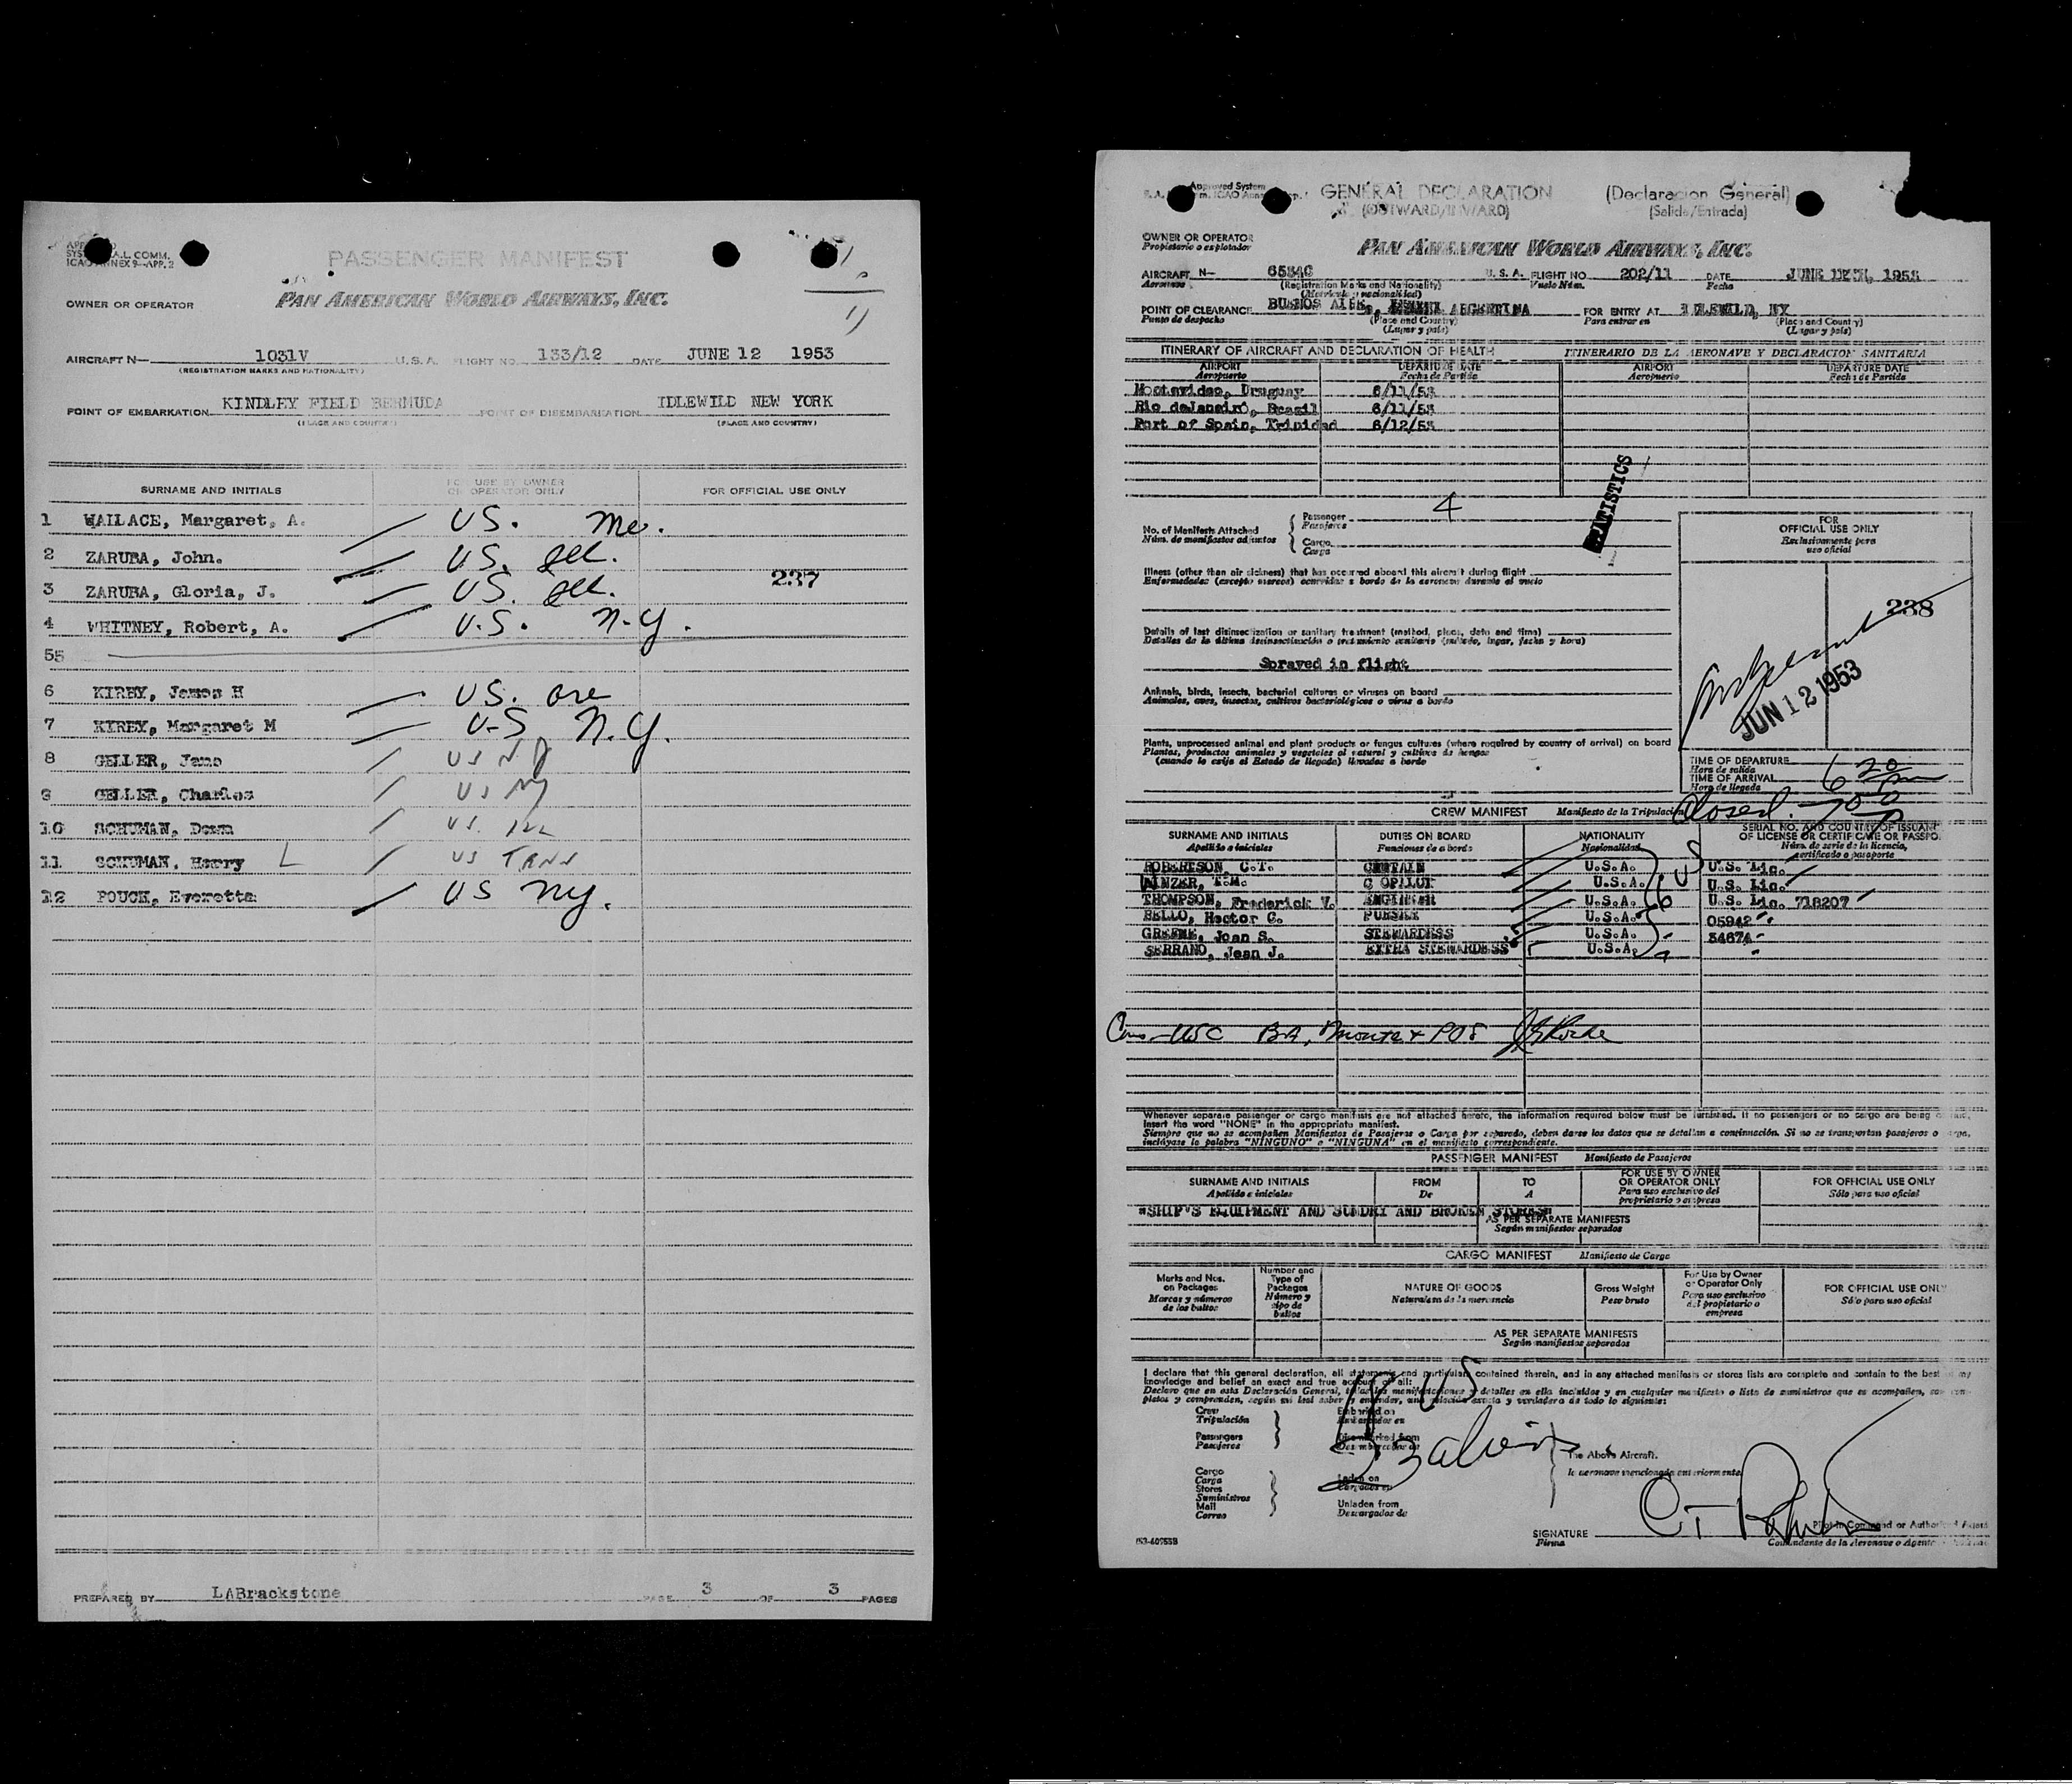 PASSENGER MANIFEST
ICAO ANNEX 9-APP. 2
OWNER OR OPERATOR PAN AMERICAN WORLD AIRWAYS, INC.
AIRCRAFT N— 1031V U.S.A. FLIGHT NO. 133/12 DATE JUNE 12 1953
(REGISTRATION MARKS AND NATIONALITY)
POINT OF EMBARKATION KINDLEY FIELD BERMUDA POINT OF DISEMBARKATION IDLEWILD NEW YORK
(PLACE AND COUNTRY) (PLACE AND COUNTRY)
SURNAME AND INITIALS FOR USE BY OWNER OR OPERATOR ONLY FOR OFFICIAL USE ONLY
1 WALLACE, Margaret, A. US. Me.
2 ZARUBA, John. US. Ill.
237
3 ZARUBA, Gloria, J. US. Ill.
4 WHITNEY, Robert, A. U.S. N.Y.
55
6 KIRBY, James H US. Ore
7 KIRBY, Margaret M U-S N.Y.
8 GELLER, Jane US NY
9 GELLER, Charles US NY
10 SCHUMAN, Dawn US.
11 SCHUMAN, Harry L US
12 POUCH, Everetta US NY.
PREPARED BY LABrackstone PAGE 3 OF 3 PAGES
GENERAL DECLARATION (Declaracion General)
(OUTWARD/INWARD) (Salida/Entrada)
OWNER OR OPERATOR
Propietario o explotador
PAN AMERICAN WORLD AIRWAYS, INC.
AIRCRAFT N— 6534C U.S.A. FLIGHT NO. 202/11 DATE JUNE 1953
Aeronave (Registration Marks and Nationality) Vuelo Núm. Fecha
POINT OF CLEARANCE BUENOS AIRES, ARGENTINA FOR ENTRY AT IDLEWILD, NY
Punto de despacho (Place and Country) Para entrar en (Place and Country)
(Lugar y país) (Lugar y país)
ITINERARY OF AIRCRAFT AND DECLARATION OF HEALTH ITINERARIO DE LA AERONAVE Y DECLARACION SANITARIA
AIRPORT DEPARTURE DATE AIRPORT DEPARTURE DATE
Aeropuerto Fecha de Partida Aeropuerto Fecha de Partida
Montevideo, Uruguay 6/11/53
Rio deJaneiro, Brasil 6/11/53
Port of Spain, Trinidad 6/12/53
STATISTICS
No. of Manifests Attached Passenger 4
Núm. de manifiestos adjuntos Pasajeros
Cargo
Carga
FOR
OFFICIAL USE ONLY
Exclusivamente para
uso oficial
238
JUN 12 1953
Illness (other than air sickness) that has occurred aboard this aircraft during flight
Enfermedades (excepto mareos) ocurridas a bordo de la aeronave durante el vuelo
Details of last disinsectization or sanitary treatment (method, place, date and time)
Detalles de la última desinsectización o tratamiento sanitario (método, lugar, fecha y hora)
Sprayed in flight
Animals, birds, insects, bacterial cultures or viruses on board
Animales, aves, insectos, cultivos bacteriológicos o virus a bordo
Plants, unprocessed animal and plant products or fungus cultures (where required by country of arrival) on board
Plantas, productos animales y vegetales al natural y cultivos de hongos
(cuando lo exija el Estado de llegada) llevados a bordo
TIME OF DEPARTURE
Hora de salida
TIME OF ARRIVAL 6 30 pm
Hora de llegada
Closed
CREW MANIFEST Manifiesto de la Tripulación
SURNAME AND INITIALS DUTIES ON BOARD NATIONALITY SERIAL NO. AND COUNTRY OF ISSUANCE OF LICENSE OR CERTIFICATE OR PASSPO.
Apellido e iniciales Funciones de a bordo Nacionalidad Núm. de serie de la licencia, certificado o pasaporte
ROBERTSON, C.T. CAPTAIN U.S.A. U.S. Lic.
WINZER, T.M. COPILOT U.S.A. U.S. Lic.
THOMPSON, Frederick V. ENGINEER U.S.A. U.S. Lic. 718207
BELLO, Hector G. PURSER U.S.A. 05942
GREENE, Joan S. STEWARDESS U.S.A. 54674
SERRANO, Jean J. EXTRA STEWARDESS U.S.A.
6 US
USC BA, Monte & POS
Whenever separate passenger or cargo manifests are not attached hereto, the information required below must be furnished. If no passengers or no cargo are being
insert the word "NONE" in the appropriate manifest.
Siempre que no se acompañen Manifiestos de Pasajeros o Carga por separado, deben darse los datos que se detallan a continuación. Si no se transportan pasajeros o carga,
inclúyase la palabra "NINGUNO" o "NINGUNA" en el manifiesto correspondiente.
PASSENGER MANIFEST Manifiesto de Pasajeros
SURNAME AND INITIALS FROM TO FOR USE BY OWNER OR OPERATOR ONLY FOR OFFICIAL USE ONLY
Apellido e iniciales De A Para uso exclusivo del propietario o empresa Sólo para uso oficial
*SHIP'S EQUIPMENT AND SUNDRY AND BROKEN STORES*
AS PER SEPARATE MANIFESTS
Según manifiestos separados
CARGO MANIFEST Manifiesto de Carga
Marks and Nos. on Packages Number and Type of Packages NATURE OF GOODS Gross Weight For Use by Owner or Operator Only FOR OFFICIAL USE ONLY
Marcas y números de los bultos Número y tipo de bultos Naturaleza de la mercancía Peso bruto Para uso exclusivo del propietario o empresa Sólo para uso oficial
AS PER SEPARATE MANIFESTS
Según manifiestos separados
I declare that this general declaration, all statements and particulars contained therein, and in any attached manifests or stores lists are complete and contain to the best of my
knowledge and belief an exact and true account of all:
Crew Embarked on
Tripulación
Passengers Disembarked from
Pasajeros
US
aliens
The Above Aircraft.
la aeronave mencionada anteriormente.
Cargo Laden on
Carga Cargados en
Stores
Suministros
Mail Unladen from
Correo Descargados de
SIGNATURE C T Robertson
Firma Pilot in Command or Authorized Agent
Comandante de la Aeronave o Agente